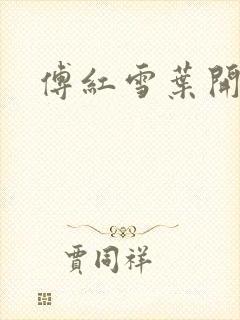 傅紅雪葉開
賈同祥